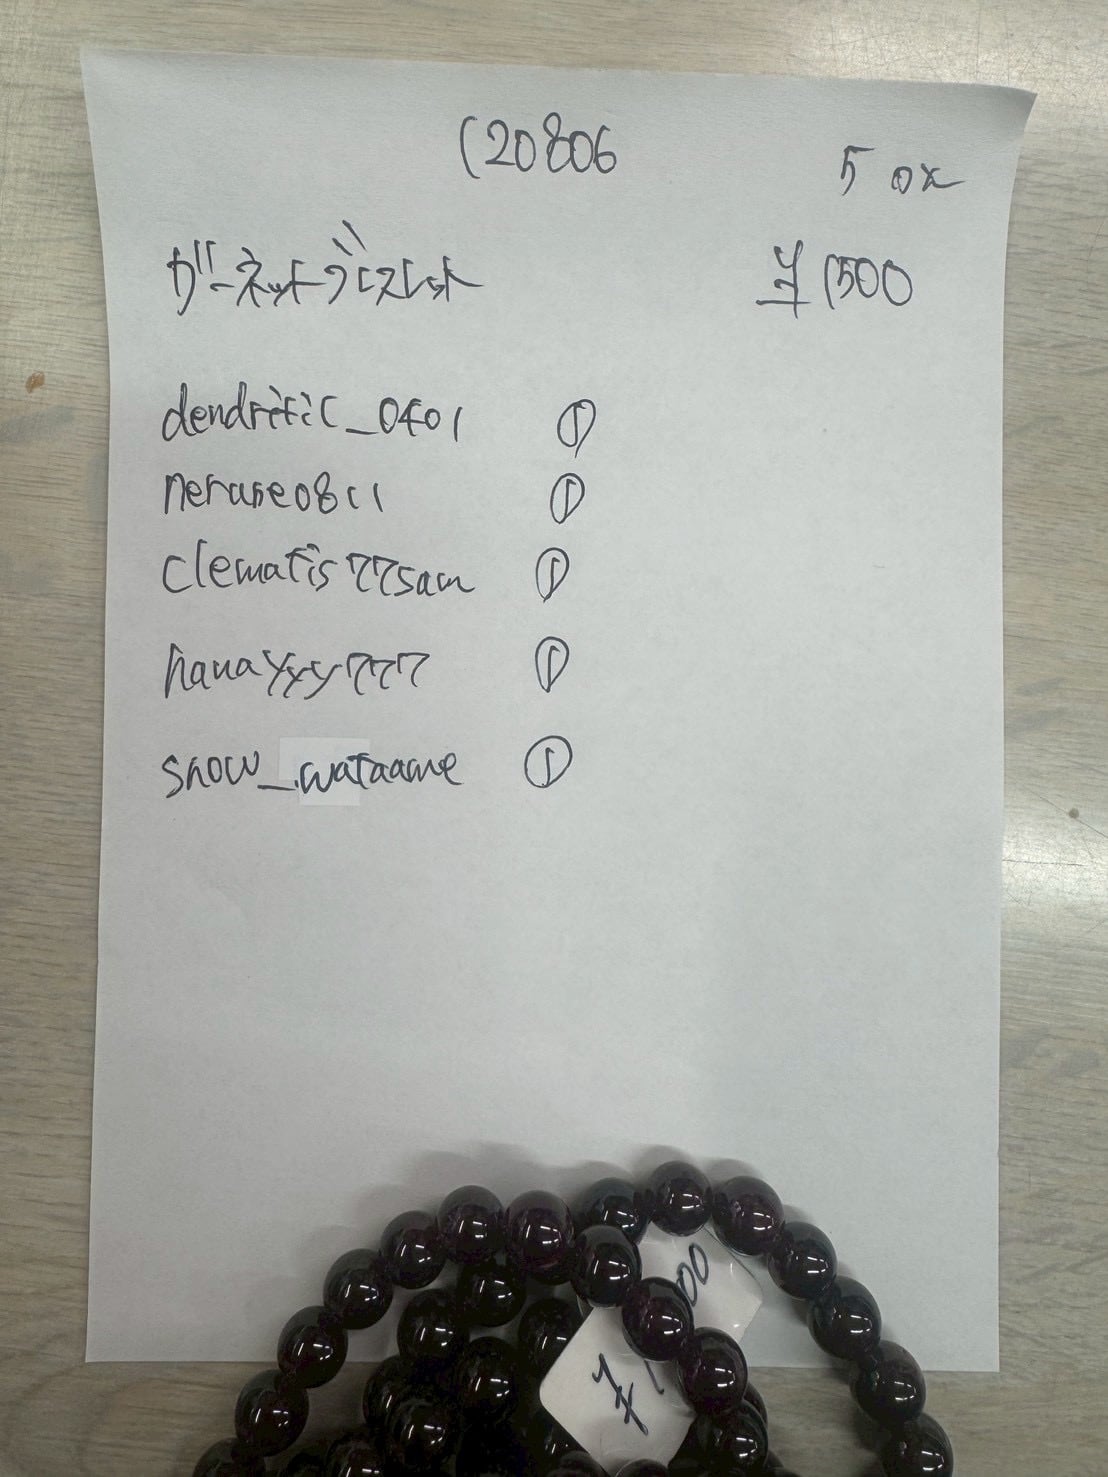 120806
50x
ガーネットブレスレット
¥1500
dendritic_0401 ①
nerune0811 ①
clematis77sam ①
hanayyy777 ①
snow_.wataame ①